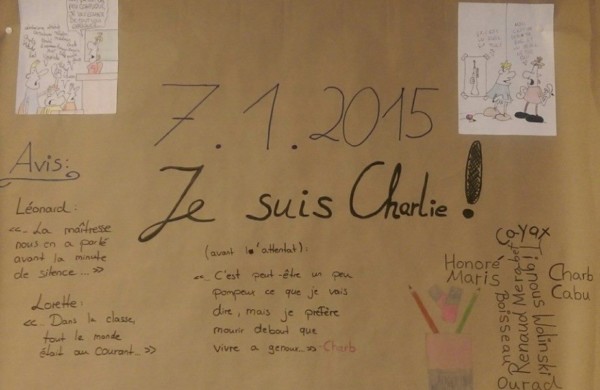 7.1.2015
Je suis Charlie !
Avis:
Léonard :
«... La maîtresse
nous en a parlé
avant la minute
de silence... »
Lorette :
«... Dans la classe,
tout le monde
était au courant... »
(avant l'attentat) :
«... C'est peut-être un peu
pompeux ce que je vais
dire, mais je préfère
mourir debout que
vivre à genoux... » Charb
Cayax
Honoré
Maris
Charb
Cabu
Boisseau
Renaud
Merabet
Tignous
Wolinski
Ourad